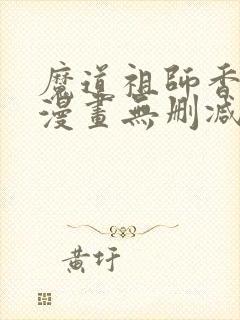 魔道祖師香
漫畫無刪減
黃圩